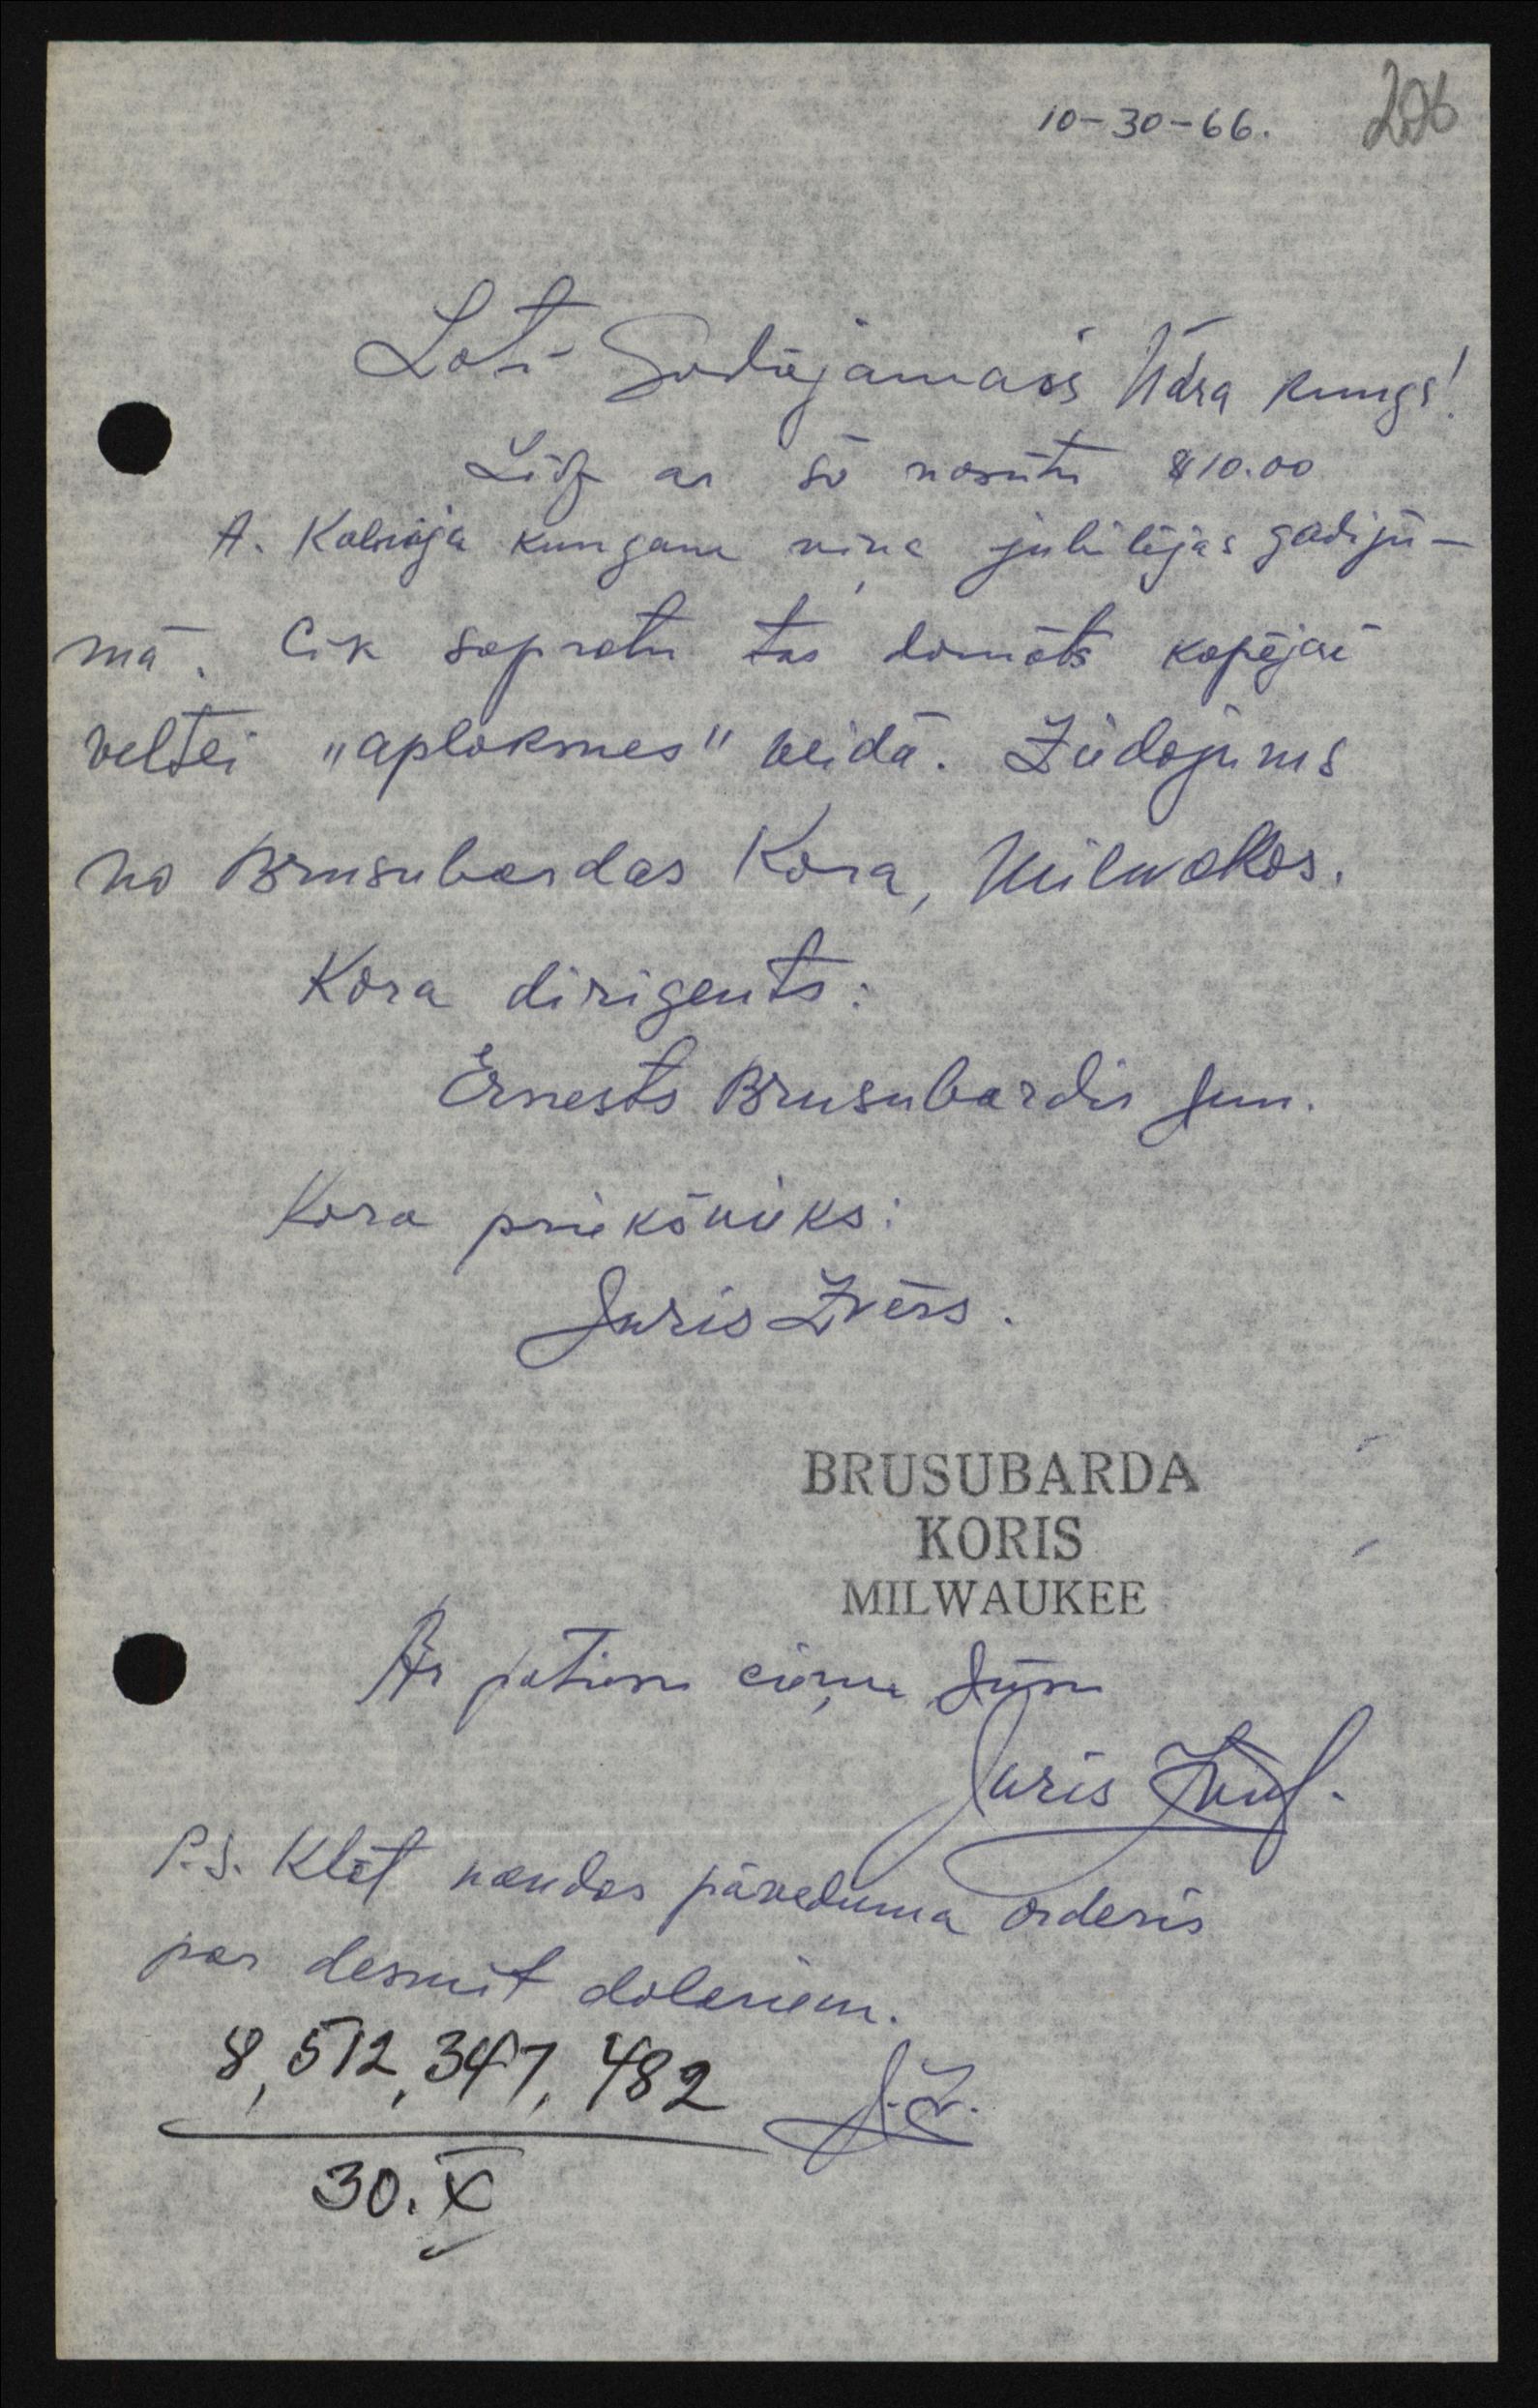 10-30-66.
226
Ļoti Godājamais Ūdra kungs!
Līdz ar šo nosūtu $10.00
A. Kalnāja kungam viņa jubilējas gadiju-
mā. Cik sapratu tas domāts kopējai
veltei „aploksnes" veidā. Ziedojums
no Brusubardas Kora, Milwokos.
Kora dirigents:
Ernests Brusubardis Jun.
Kora priekšnieks:
Juris Zvērs.
BRUSUBARDA
KORIS
MILWAUKEE
Ar patiesu cieņu Jūsu
Juris
P.S. Klāt naudas pārveduma orderis
par desmit dolariem.
8,512,347,482
J.Z.
30.X